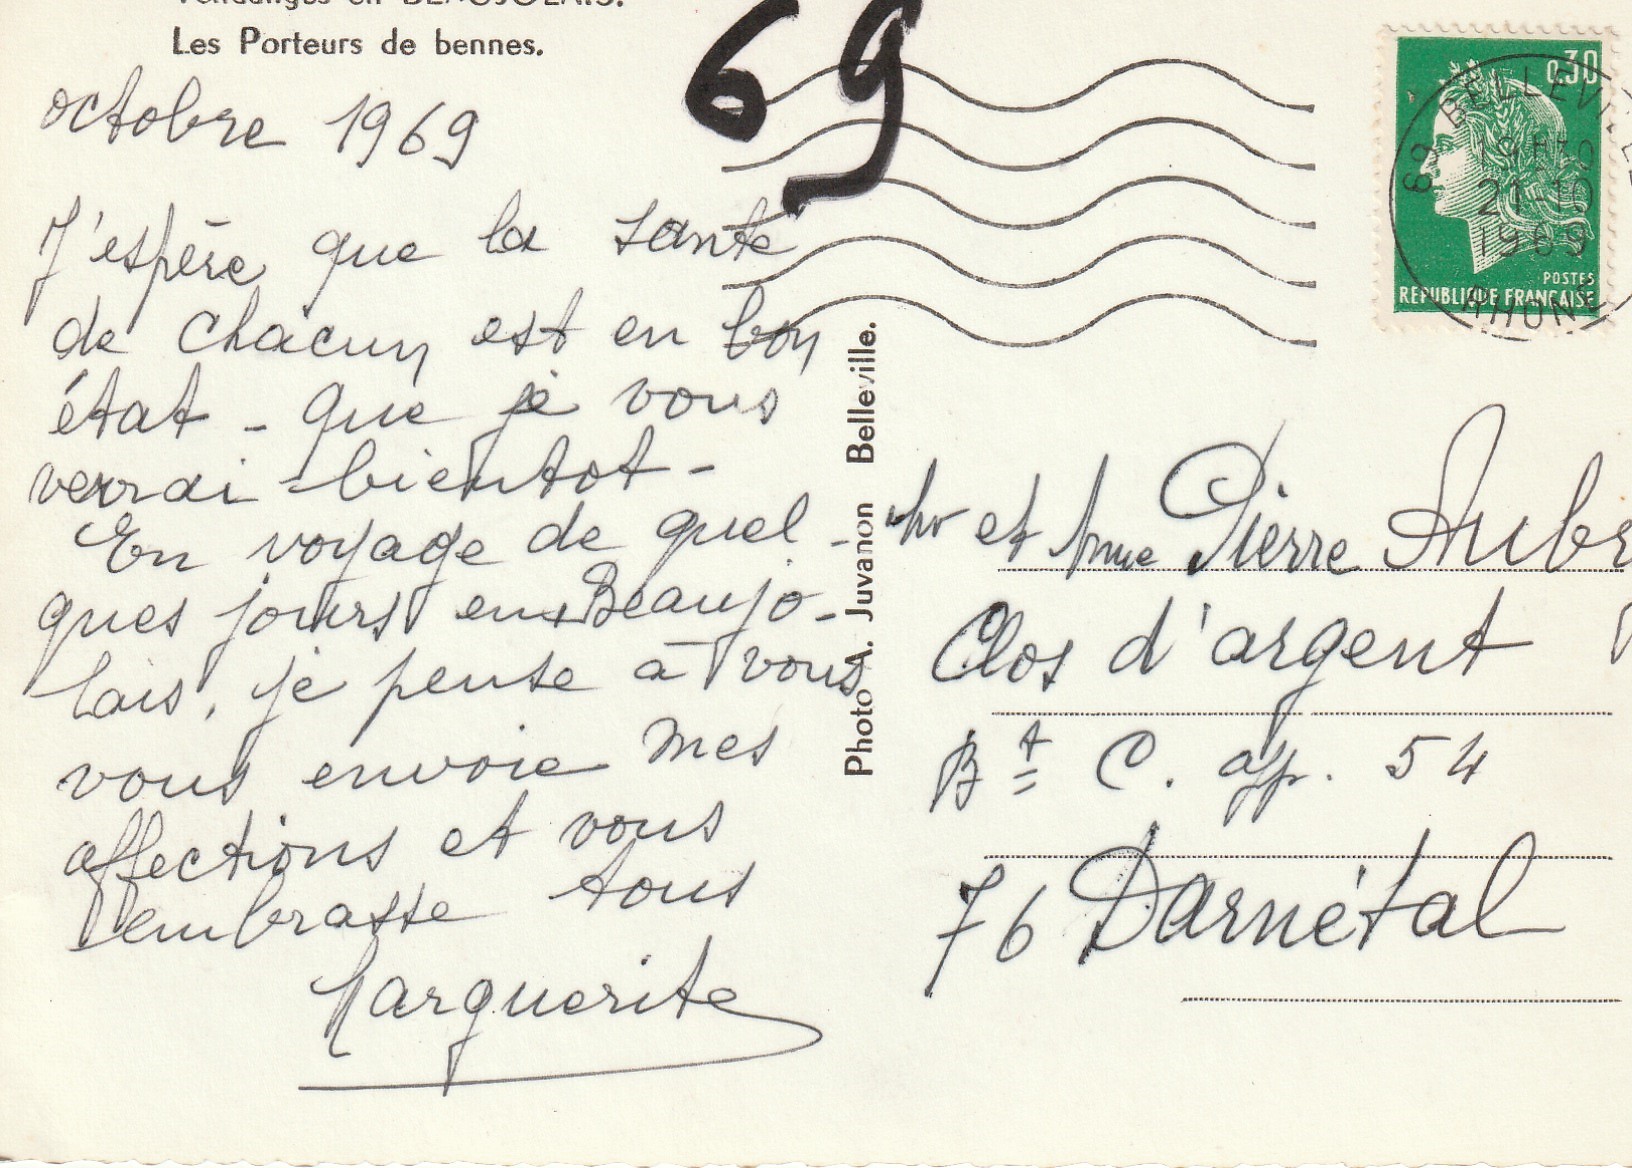 Vendanges en BEAUJOLAIS.
Les Porteurs de bennes.
69
octobre 1969
J'espère que la santé
de chacun est en bon
état - que je vous
verrai bientot -
En voyage de quel -
ques jours en Beaujo -
lais, je pense à vous
vous envoie mes
affections et vous
embrasse tous
Marguerite
Photo A. Juvanon Belleville.
0,30
POSTES
REPUBLIQUE FRANÇAISE
69 BELLEVILLE
19H30
21-10
1969
RHONE
Mr et Mme Pierre Aubr
Clos d'argent
Bt C. app. 54
76 Darnétal